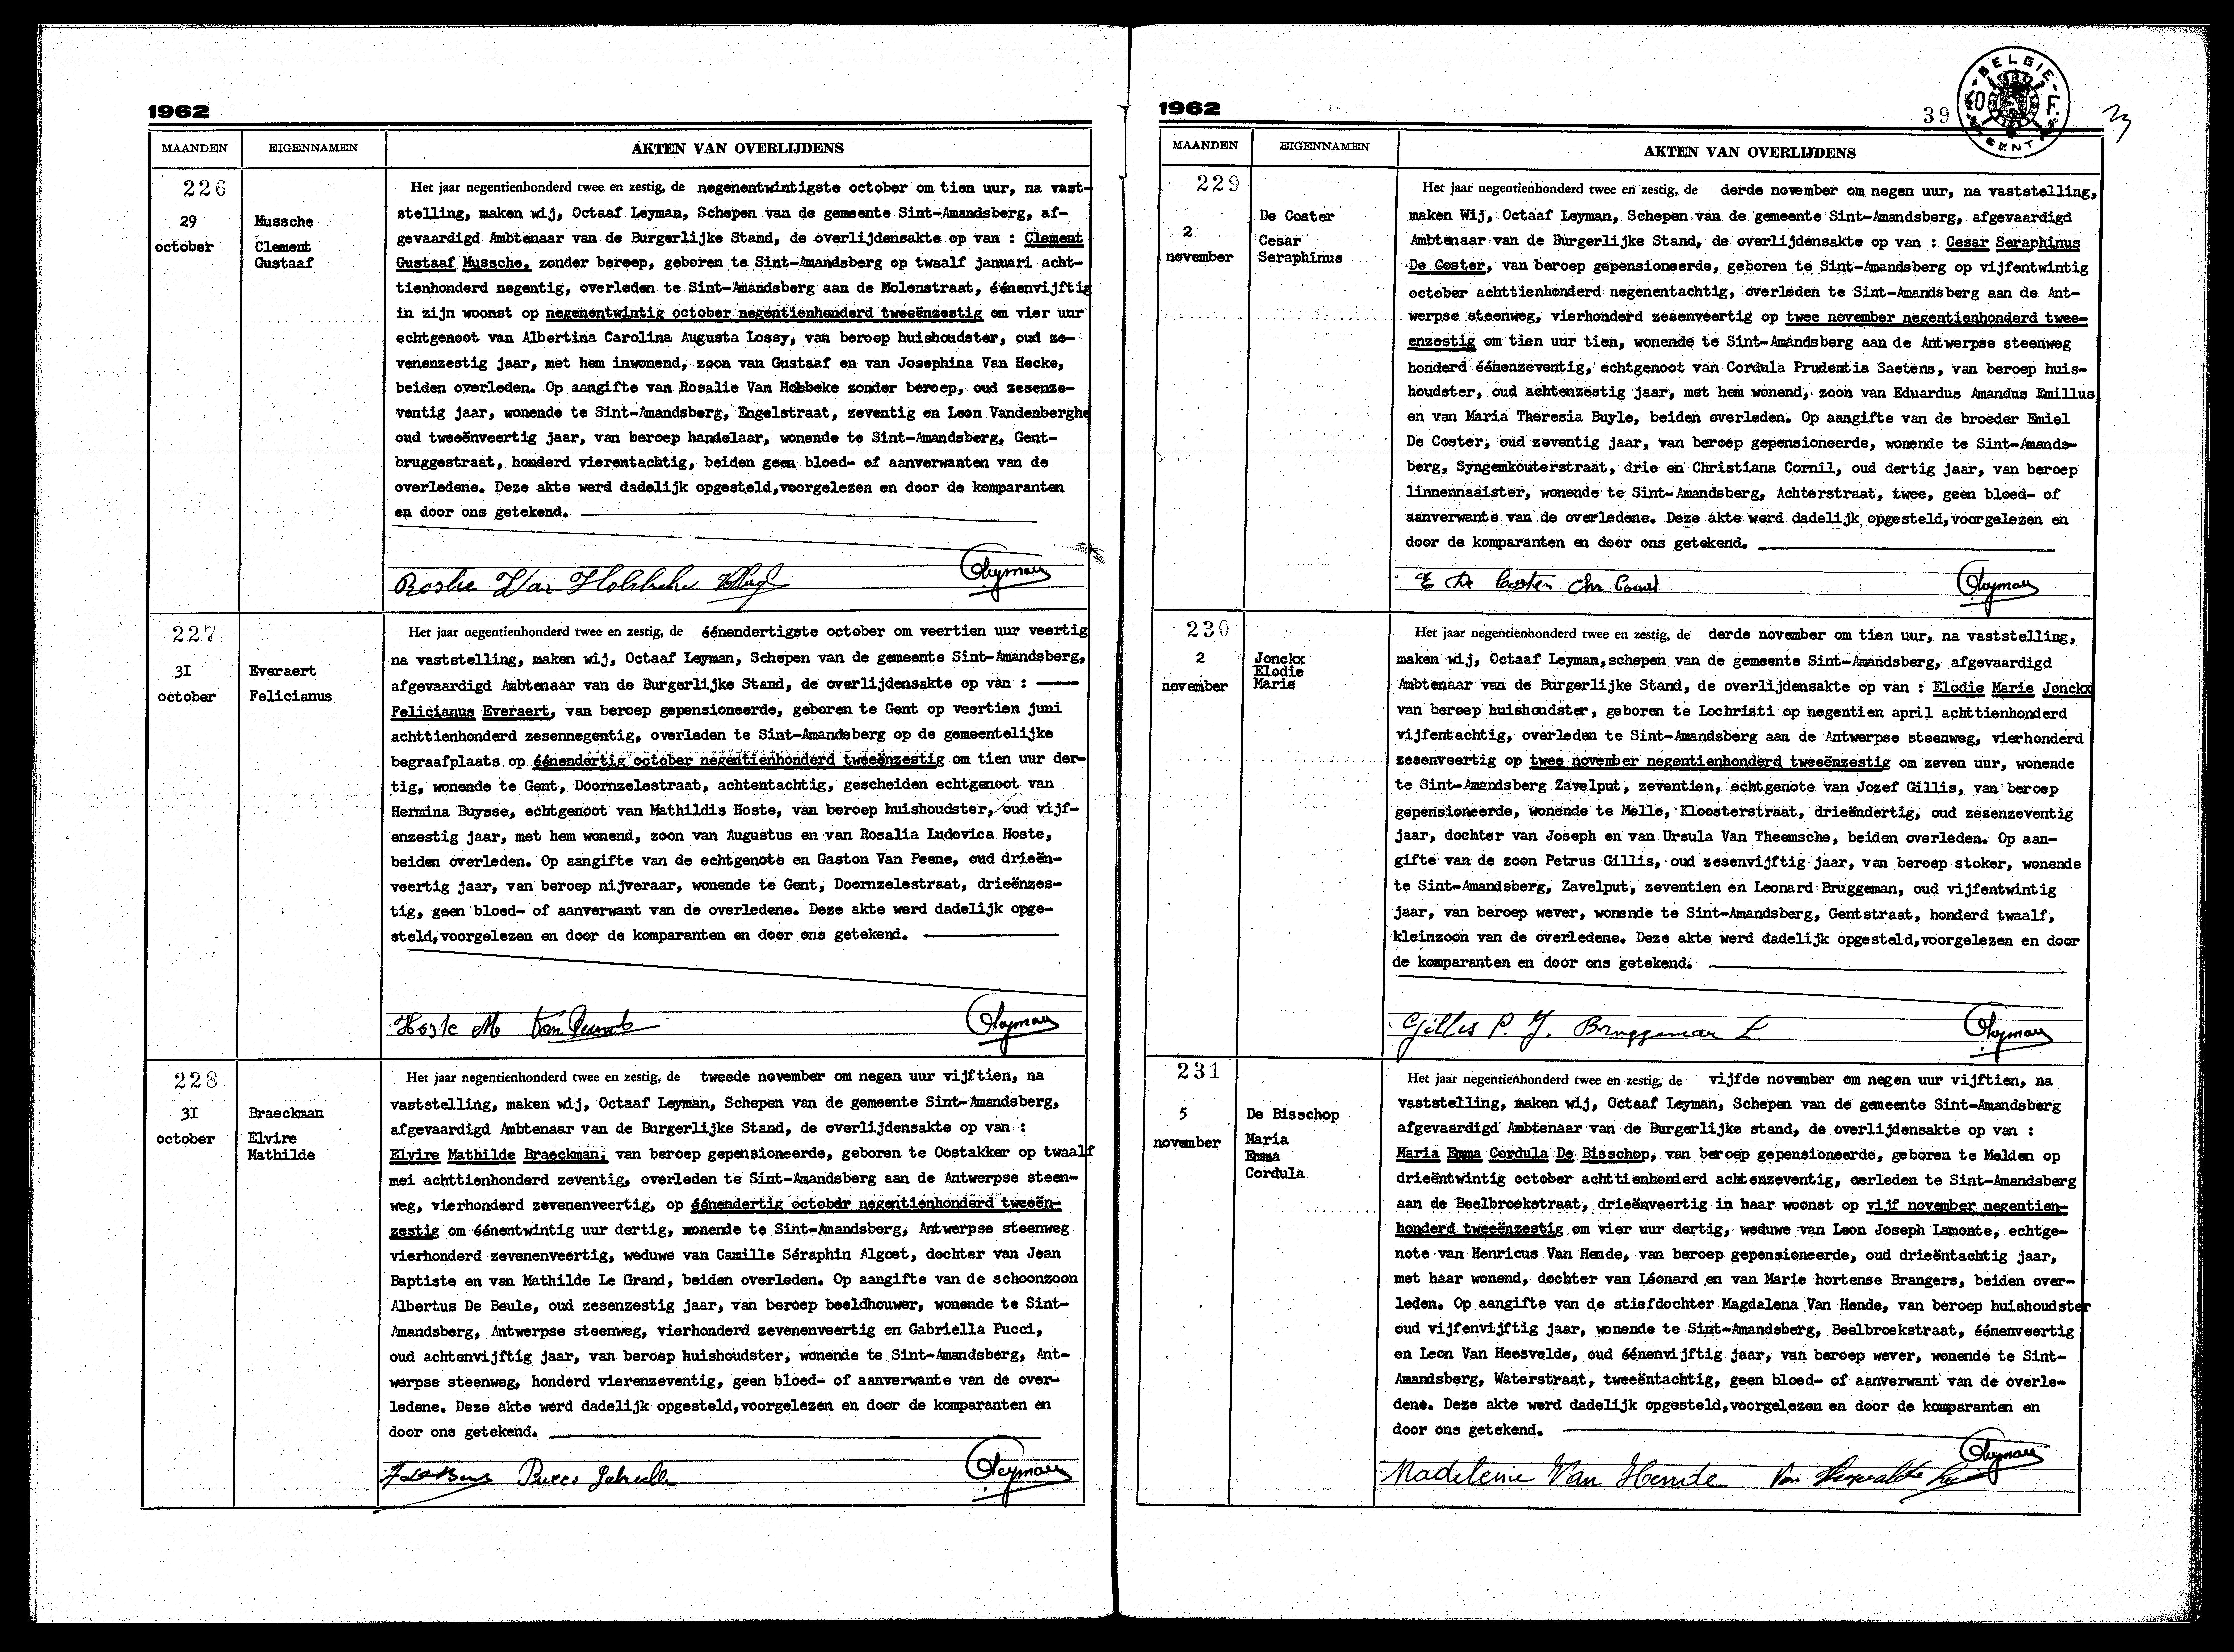 1962
MAANDEN
EIGENNAMEN
AKTEN VAN OVERLIJDENS
226
29
october
Mussche
Clement
Gustaaf
Het jaar negentienhonderd twee en zestig, de negenentwintigste october om tien uur, na vast-
stelling, maken wij, Octaaf Leyman, Schepen van de gemeente Sint-Amandsberg, af-
gevaardigd Ambtenaar van de Burgerlijke Stand, de overlijdensakte op van : Clement
Gustaaf Mussche, zonder beroep, geboren te Sint-Amandsberg op twaalf januari acht-
tienhonderd negentig, overleden te Sint-Amandsberg aan de Molenstraat, éénenvijftig
in zijn woonst op negenentwintig october negentienhonderd tweeënzestig om vier uur
echtgenoot van Albertina Carolina Augusta Lossy, van beroep huishoudster, oud ze-
venenzestig jaar, met hem inwonend, zoon van Gustaaf en van Josephina Van Hecke,
beiden overleden. Op aangifte van Rosalie Van Hobbeke zonder beroep, oud zesenze-
ventig jaar, wonende te Sint-Amandsberg, Engelstraat, zeventig en Leon Vandenberghe
oud tweeënveertig jaar, van beroep handelaar, wonende te Sint-Amandsberg, Gent-
bruggestraat, honderd vierentachtig, beiden geen bloed- of aanverwanten van de
overledene. Deze akte werd dadelijk opgesteld,voorgelezen en door de komparanten
en door ons getekend.
Leyman
227
31
october
Everaert
Felicianus
Het jaar negentienhonderd twee en zestig, de éénendertigste october om veertien uur veertig
na vaststelling, maken wij, Octaaf Leyman, Schepen van de gemeente Sint-Amandsberg,
afgevaardigd Ambtenaar van de Burgerlijke Stand, de overlijdensakte op van :
Felicianus Everaert, van beroep gepensioneerde, geboren te Gent op veertien juni
achttienhonderd zesennegentig, overleden te Sint-Amandsberg op de gemeentelijke
begraafplaats op éénendertig october negentienhonderd tweeënzestig om tien uur der-
tig, wonende te Gent, Doornzelestraat, achtentachtig, gescheiden echtgenoot van
Hermina Buysse, echtgenoot van Mathildis Hoste, van beroep huishoudster, oud vijf-
enzestig jaar, met hem wonend, zoon van Augustus en van Rosalia Ludovica Hoste,
beiden overleden. Op aangifte van de echtgenote en Gaston Van Peene, oud drieën-
veertig jaar, van beroep nijveraar, wonende te Gent, Doornzelestraat, drieënzes-
tig, geen bloed- of aanverwant van de overledene. Deze akte werd dadelijk opge-
steld,voorgelezen en door de komparanten en door ons getekend.
Hoste M Leyman
228
31
october
Braeckman
Elvire
Mathilde
Het jaar negentienhonderd twee en zestig, de tweede november om negen uur vijftien, na
vaststelling, maken wij, Octaaf Leyman, Schepen van de gemeente Sint-Amandsberg,
afgevaardigd Ambtenaar van de Burgerlijke Stand, de overlijdensakte op van :
Elvire Mathilde Braeckman, van beroep gepensioneerde, geboren te Oostakker op twaalf
mei achttienhonderd zeventig, overleden te Sint-Amandsberg aan de Antwerpse steen-
weg, vierhonderd zevenenveertig, op éénendertig october negentienhonderd tweeën-
zestig om éénentwintig uur dertig, wonende te Sint-Amandsberg, Antwerpse steenweg
vierhonderd zevenenveertig, weduwe van Camille Séraphin Algoet, dochter van Jean
Baptiste en van Mathilde Le Grand, beiden overleden. Op aangifte van de schoonzoon
Albertus De Beule, oud zesenzestig jaar, van beroep beeldhouwer, wonende te Sint-
Amandsberg, Antwerpse steenweg, vierhonderd zevenenveertig en Gabriella Pucci,
oud achtenvijftig jaar, van beroep huishoudster, wonende te Sint-Amandsberg, Ant-
werpse steenweg, honderd vierenzeventig, geen bloed- of aanverwante van de over-
ledene. Deze akte werd dadelijk opgesteld,voorgelezen en door de komparanten en
door ons getekend.
Leyman
1962
39
BELGIE
40 F.
GENT
MAANDEN
EIGENNAMEN
AKTEN VAN OVERLIJDENS
229
2
november
De Coster
Cesar
Seraphinus
Het jaar negentienhonderd twee en zestig, de derde november om negen uur, na vaststelling,
maken Wij, Octaaf Leyman, Schepen van de gemeente Sint-Amandsberg, afgevaardigd
Ambtenaar van de Burgerlijke Stand, de overlijdensakte op van : Cesar Seraphinus
De Coster, van beroep gepensioneerde, geboren te Sint-Amandsberg op vijfentwintig
october achttienhonderd negenentachtig, overleden te Sint-Amandsberg aan de Ant-
werpse steenweg, vierhonderd zesenveertig op twee november negentienhonderd twee-
enzestig om tien uur tien, wonende te Sint-Amandsberg aan de Antwerpse steenweg
honderd éénenzeventig, echtgenoot van Cordula Prudentia Saetens, van beroep huis-
houdster, oud achtenzestig jaar, met hem wonend, zoon van Eduardus Amandus Emillus
en van Maria Theresia Buyle, beiden overleden. Op aangifte van de broeder Emiel
De Coster, oud zeventig jaar, van beroep gepensioneerde, wonende te Sint-Amands-
berg, Syngemkouterstraat, drie en Christiana Cornil, oud dertig jaar, van beroep
linnennaaister, wonende te Sint-Amandsberg, Achterstraat, twee, geen bloed- of
aanverwante van de overledene. Deze akte werd dadelijk opgesteld,voorgelezen en
door de komparanten en door ons getekend.
E De Coster Chr Cornil Leyman
230
2
november
Jonckx
Elodie
Marie
Het jaar negentienhonderd twee en zestig, de derde november om tien uur, na vaststelling,
maken wij, Octaaf Leyman,schepen van de gemeente Sint-Amandsberg, afgevaardigd
Ambtenaar van de Burgerlijke Stand, de overlijdensakte op van : Elodie Marie Jonckx
van beroep huishoudster, geboren te Lochristi op negentien april achttienhonderd
vijfentachtig, overleden te Sint-Amandsberg aan de Antwerpse steenweg, vierhonderd
zesenveertig op twee november negentienhonderd tweeënzestig om zeven uur, wonende
te Sint-Amandsberg Zavelput, zeventien, echtgenote van Jozef Gillis, van beroep
gepensioneerde, wonende te Melle, Kloosterstraat, drieëndertig, oud zesenzeventig
jaar, dochter van Joseph en van Ursula Van Theemsche, beiden overleden. Op aan-
gifte van de zoon Petrus Gillis, oud zesenvijftig jaar, van beroep stoker, wonende
te Sint-Amandsberg, Zavelput, zeventien en Leonard Bruggeman, oud vijfentwintig
jaar, van beroep wever, wonende te Sint-Amandsberg, Gentstraat, honderd twaalf,
kleinzoon van de overledene. Deze akte werd dadelijk opgesteld,voorgelezen en door
de komparanten en door ons getekend.
Gillis P. J. Bruggeman L. Leyman
231
5
november
De Bisschop
Maria
Emma
Cordula
Het jaar negentienhonderd twee en zestig, de vijfde november om negen uur vijftien, na
vaststelling, maken wij, Octaaf Leyman, Schepen van de gemeente Sint-Amandsberg
afgevaardigd Ambtenaar van de Burgerlijke stand, de overlijdensakte op van :
Maria Emma Cordula De Bisschop, van beroep gepensioneerde, geboren te Melden op
drieëntwintig october achttienhonderd achtenzeventig, oerleden te Sint-Amandsberg
aan de Beelbroekstraat, drieënveertig in haar woonst op vijf november negentien-
honderd tweeënzestig om vier uur dertig, weduwe van Leon Joseph Lamonte, echtge-
note van Henricus Van Hende, van beroep gepensioneerde, oud drieëntachtig jaar,
met haar wonend, dochter van Léonard en van Marie hortense Brangers, beiden over-
leden. Op aangifte van de stiefdochter Magdalena Van Hende, van beroep huishoudster
oud vijfenvijftig jaar, wonende te Sint-Amandsberg, Beelbroekstraat, éénenveertig
en Leon Van Heesvelde, oud éénenvijftig jaar, van beroep wever, wonende te Sint-
Amandsberg, Waterstraat, tweeëntachtig, geen bloed- of aanverwant van de overle-
dene. Deze akte werd dadelijk opgesteld,voorgelezen en door de komparanten en
door ons getekend.
Leyman
Madeleine Van Hende